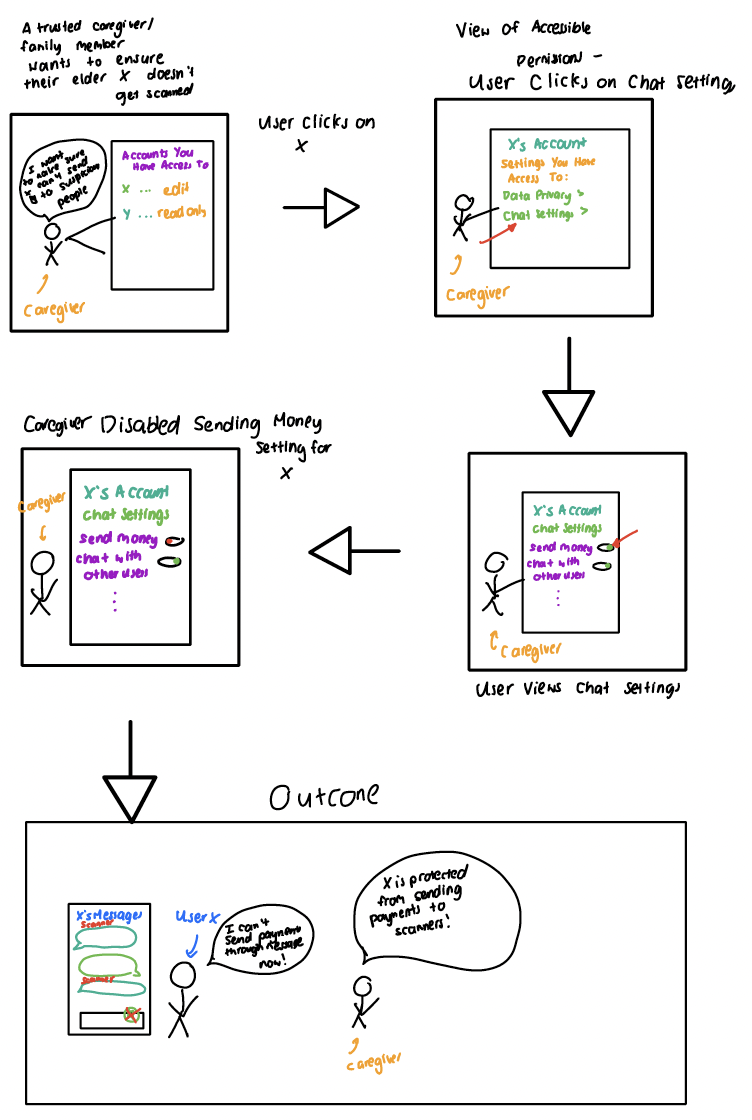 A trusted caregiver/
family member
wants to ensure
their elder X doesn't
get scanned
I want
to make sure
X can't send
$ to suspicious
people
Accounts You
Have Access To
X ... edit
Y ... read only
Caregiver
User Clicks on
X
View of Accessible
Permission -
User Clicks on Chat Setting
X's Account
Settings You Have
Access To:
Data Privacy >
Chat Settings >
Caregiver
X's Account
Chat Settings
Send money
Chat with
other users
Caregiver
User Views Chat Settings
Caregiver Disabled Sending Money
Setting for
X
Caregiver
X's Account
Chat Settings
Send money
Chat with
other users
Outcone
X's Messages
Scanner
Scanner
User X
I can't
Send payments
through message
now!
X is protected
from sending
payments to
scanners!
Caregiver